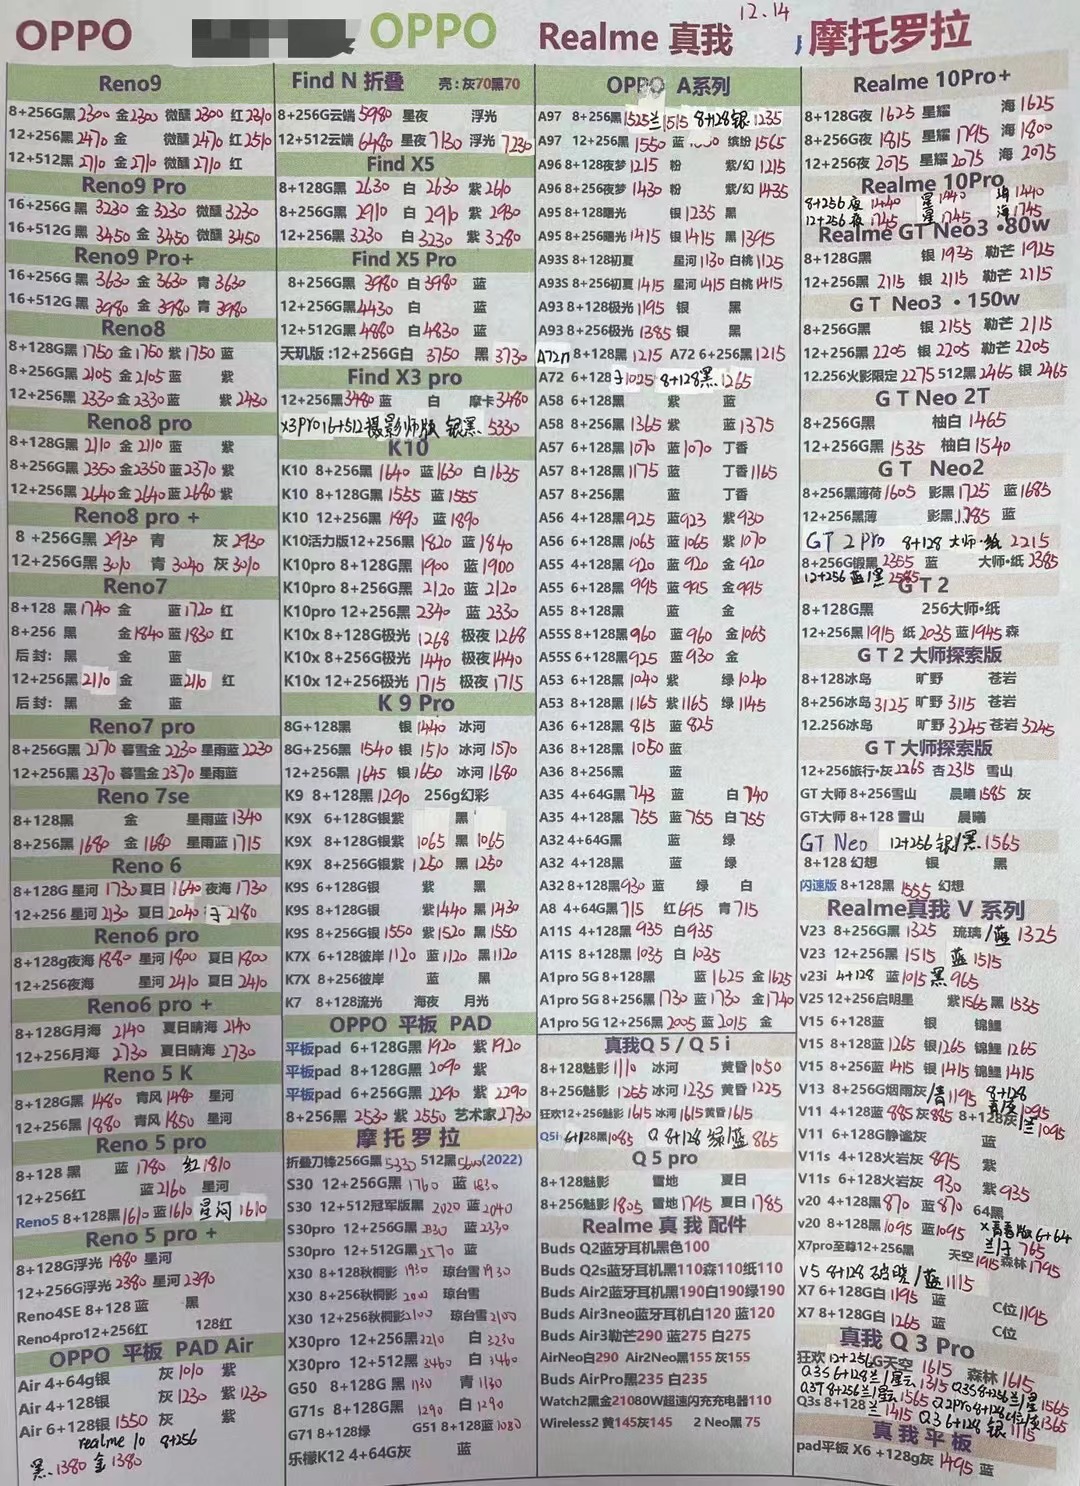 OPPO
OPPO
Realme 真我
12.14
摩托罗拉
Reno9
8+256G黑2300 金2300 微醺2300 红2310
12+256黑2470 金 微醺2470 红2510
12+512黑2710 金2710 微醺2710 红
Reno9 Pro
16+256G黑3230 金3230 微醺3230
16+512G黑3450 金3450 微醺3450
Reno9 Pro+
16+256G黑3630 金3630 青3630
16+512G黑3980 金3980 青3980
Reno8
8+128G黑1750 金1750 紫1750 蓝
8+256G黑2105 金2105 蓝 紫
12+256黑2330 金2330 蓝 紫2430
Reno8 pro
8+128G黑2110 金2110 蓝 紫
8+256G黑2350 金2350 蓝2370 紫
12+256黑2640 金2640 蓝2680 紫
Reno8 pro +
8 +256G黑2930 青 灰2930
12+256G黑3010 青3040 灰3010
Reno7
8+128 黑1740 金 蓝1720 红
8+256 黑 金1840 蓝1830 红
后封：黑 金 蓝
12+256黑2110 金 蓝2110 红
后封：黑 金 蓝
Reno7 pro
8+256G黑2170 暮雪金2230 星雨蓝2230
12+256黑2370 暮雪金2370 星雨蓝
Reno 7se
8+128黑 金 星雨蓝1340
8+256黑1680 金1680 星雨蓝1715
Reno 6
8+128G 星河1730 夏日1640 夜海1730
12+256 星河2130 夏日2040 2180
Reno6 pro
8+128g夜海1880 星河1800 夏日1800
12+256夜海 星河2410 夏日2410
Reno6 pro +
8+128G月海2140 夏日晴海2140
12+256月海2730 夏日晴海2730
Reno 5 K
8+128G黑1480 青风1480 星河
12+256黑1880 青风1850 星河
Reno 5 pro
8+128 黑 蓝1780 红1810
12+256红 蓝2160 星河
Reno5 8+128黑1610 蓝1610 星河1610
Reno 5 pro +
8+128G浮光1880 星河
12+256G浮光2380 星河2390
Reno4SE 8+128 蓝 黑
Reno4pro12+256红 128红
OPPO 平板 PAD Air
Air 4+64g银 灰1010 紫
Air 4+128银 灰1230 紫1230
Air 6+128银1550 灰 紫
realme 10 8+256
黑.1380 金1380
Find N 折叠 壳：灰70黑70
8+256G云端5980 星夜 浮光
12+512云端6480 星夜7130 浮光7230
Find X5
8+128G黑2630 白2630 紫2610
8+256G黑2910 白2910 紫2930
12+256黑3230 白3230 紫3280
Find X5 Pro
8+256G黑3980 白3980 蓝
12+256G黑4430 白 蓝
12+512G黑4880 白4830 蓝
天玑版：12+256G白 3750 黑3730
Find X3 pro
12+256黑3480 蓝 白 摩卡3480
X3Pro16+512摄影师版 银黑.5330
K10
K10 8+256黑1640 蓝1630 白1635
K10 8+128G黑1555 蓝1555
K10 12+256黑1890 蓝1890
K10活力版12+256黑1820 蓝1840
K10pro 8+128G黑1900 蓝1900
K10pro 8+256G黑2120 蓝2120
K10pro 12+256黑2340 蓝2330
K10x 8+128G极光1268 极夜1268
K10x 8+256G极光1440 极夜1440
K10x 12+256极光1715 极夜1715
K 9 Pro
8G+128黑 银1440 冰河
8G+256黑1540 银1510 冰河1570
12+256黑1645 银1650 冰河1680
K9 8+128黑1290 256g幻彩
K9X 6+128G银紫 黑
K9X 8+128G银紫1065 黑1065
K9X 8+256G银紫1250 黑1250
K9S 6+128G银 紫 黑
K9S 8+128G银 紫1440 黑1430
K9S 8+256G银1550 紫1520 黑1550
K7X 6+128彼岸1120 蓝1120 黑1120
K7X 8+256彼岸 蓝 黑
K7 8+128流光 海夜 月光
OPPO 平板 PAD
平板pad 6+128G黑1920 紫1920
平板pad 8+128G黑2090 紫
平板pad 6+256G黑2290 紫2290
8+256黑2530 紫2550 艺术家2730
摩托罗拉
折叠刀锋256G黑5330 512黑5600(2022)
S30 12+256G黑1760 蓝1830
S30 12+512冠军版黑2020 蓝2040
S30pro 12+256G黑2330 蓝2330
S30pro 12+512G黑2570 蓝
X30 8+128秋桐影1930 琼台雪1930
X30 8+256秋桐影2000 琼台雪
X30 12+256秋桐影2100 琼台雪2100
X30pro 12+256黑3210 白3230
X30pro 12+512黑3460 白3460
G50 8+128G黑1130 青1130
G71s 8+128G黑1290 白1290
G71 8+128绿 G51 8+128蓝1080
乐檬K12 4+64G灰 蓝
OPPO A系列
A97 8+256黑1525兰1515 8+128银.1235
A97 12+256黑1550 蓝 缤纷1565
A96 8+128夜梦1215 粉 紫/幻1215
A96 8+256夜梦1430 粉 紫/幻1435
A95 8+128曙光 银1235 黑
A95 8+256曙光1415 银1415 黑1395
A93S 8+128初夏 星河1130 白桃1125
A93S 8+256初夏1415 星河1415 白桃1415
A93 8+128极光1195 银 黑
A93 8+256极光1385 银 黑
A72n 8+128黑1215 A72 6+256黑1215
A72 6+128 1025 8+128黑.1265
A58 6+128黑 紫 蓝
A58 8+256黑1365 紫 蓝1375
A57 6+128黑1070 蓝1070 丁香
A57 8+128黑1175 蓝 丁香1165
A57 8+256黑 蓝 丁香
A56 4+128黑925 蓝923 紫930
A56 6+128黑1065 蓝1065 紫1070
A55 4+128黑920 蓝920 金920
A55 6+128黑995 蓝995 金995
A55 8+128黑 蓝 金
A55S 8+128黑960 蓝960 金1065
A55S 6+128黑925 蓝930 金
A53 6+128黑1040 紫 绿1040
A53 8+128黑1165 紫1165 绿1145
A36 6+128黑815 蓝825
A36 8+128黑1050 蓝
A36 8+256黑 蓝
A35 4+64G黑743 蓝 白740
A35 4+128黑755 蓝755 白755
A32 4+64G黑 蓝 绿
A32 4+128黑 蓝 绿
A32 8+128黑930 蓝 绿 白
A8 4+64G黑715 红695 青715
A11S 4+128黑935 白935
A11S 8+128黑1035 白1035
A1pro 5G 8+128黑 蓝1625 金1625
A1pro 5G 8+256黑1730 蓝1730 金1740
A1pro 5G 12+256黑2005 蓝2015 金
真我Q 5 / Q 5 i
8+128魅影1110 冰河 黄昏1050
8+256魅影1255 冰河1235 黄昏1225
狂欢12+256魅影1615 冰河1615 黄昏1615
Q5i 6+128黑1085 Q 8+128 绿/蓝 865
Q 5 pro
8+128魅影 雪地 夏日
8+256魅影1805 雪地1795 夏日1785
Realme 真 我 配件
Buds Q2蓝牙耳机黑色100
Buds Q2s蓝牙耳机黑110森110纸110
Buds Air2蓝牙耳机黑190白190绿190
Buds Air3neo蓝牙耳机白120 蓝120
Buds Air3勒芒290 蓝275 白275
AirNeo白290 Air2Neo黑155 灰155
Buds AirPro黑235 白235
Watch2黑金21080W超速闪充充电器110
Wireless2 黄145灰145 2 Neo黑 75
Realme 10Pro+
8+128G夜1625 星耀 海1625
8+256G夜1815 星耀1795 海1800
12+256夜2075 星耀2075 海2075
Realme 10Pro
8+256夜1440 星1440 海1440
12+256夜1745 星1745 海1745
Realme GT Neo3 •80w
8+128G黑 银1935 勒芒1925
12+256黑2115 银2115 勒芒2115
G T Neo3 • 150w
8+256G黑 银2155 勒芒2115
12+256黑2205 银2205 勒芒2205
12.256火影限定2275 512黑2465 银2465
G T Neo 2T
8+256G黑 柚白1465
12+256G黑1535 柚白1540
G T Neo2
8+256黑薄荷1605 影黑1725 蓝1685
12+256黑薄 影黑.1785 蓝
GT 2 Pro 8+128 大师·纸 2215
8+256G锻黑2355 蓝 大师·纸2385
12+256 蓝/黑2585
G T 2
8+128G黑 256大师·纸
12+256黑1915 纸2035 蓝1945 森
G T 2 大师探索版
8+128冰岛 旷野 苍岩
8+256冰岛3125 旷野3115 苍岩
12.256冰岛 旷野3245 苍岩3245
G T 大师探索版
12+256旅行·灰2265 杏2315 雪山
GT 大师 8+256雪山 晨曦1585 灰
GT大师 8+128 雪山 晨曦
GT Neo 12+256 银/黑.1565
8+128 幻想 银 黑
闪速版 8+128黑1555 幻想
Realme真我 V 系列
V23 8+256G黑1325 琉璃/蓝1325
V23 12+256黑1515 蓝1515
v23i 4+128 蓝1015 黑965
V25 12+256启明星 紫1565 黑1535
V15 6+128蓝 银 锦鲤
V15 8+128蓝1265 银1265 锦鲤1265
V15 8+256蓝1415 银1415 锦鲤1415
V13 8+256G烟雨灰/青1195 8+128
青/灰1095
V11 4+128蓝885 灰885 8+128灰/兰1095
V11 6+128G静谧灰 蓝
V11s 4+128火岩灰895 紫
V11s 6+128火岩灰930 紫935
v20 4+128黑870 蓝870 64黑
v20 8+128黑1095 蓝1095 X青春版6+64
765
X7pro至尊12+256黑 天空1915 森林1795
V5 8+128 破晓/蓝1115
X7 6+128G白1195 蓝 C位1195
X7 8+128G白1265 蓝 C位
真我 Q 3 Pro
狂欢12+256G天空1615 森林1615
Q3S 6+128兰/星云1315 Q3S8+256兰/星1565
Q3T8+256兰/星云1565 Q2Pro8+128 1365
Q3s 8+128兰1415 Q3 6+128 银1115
真 我 平 板
pad平板 X6 +128g灰1495 蓝